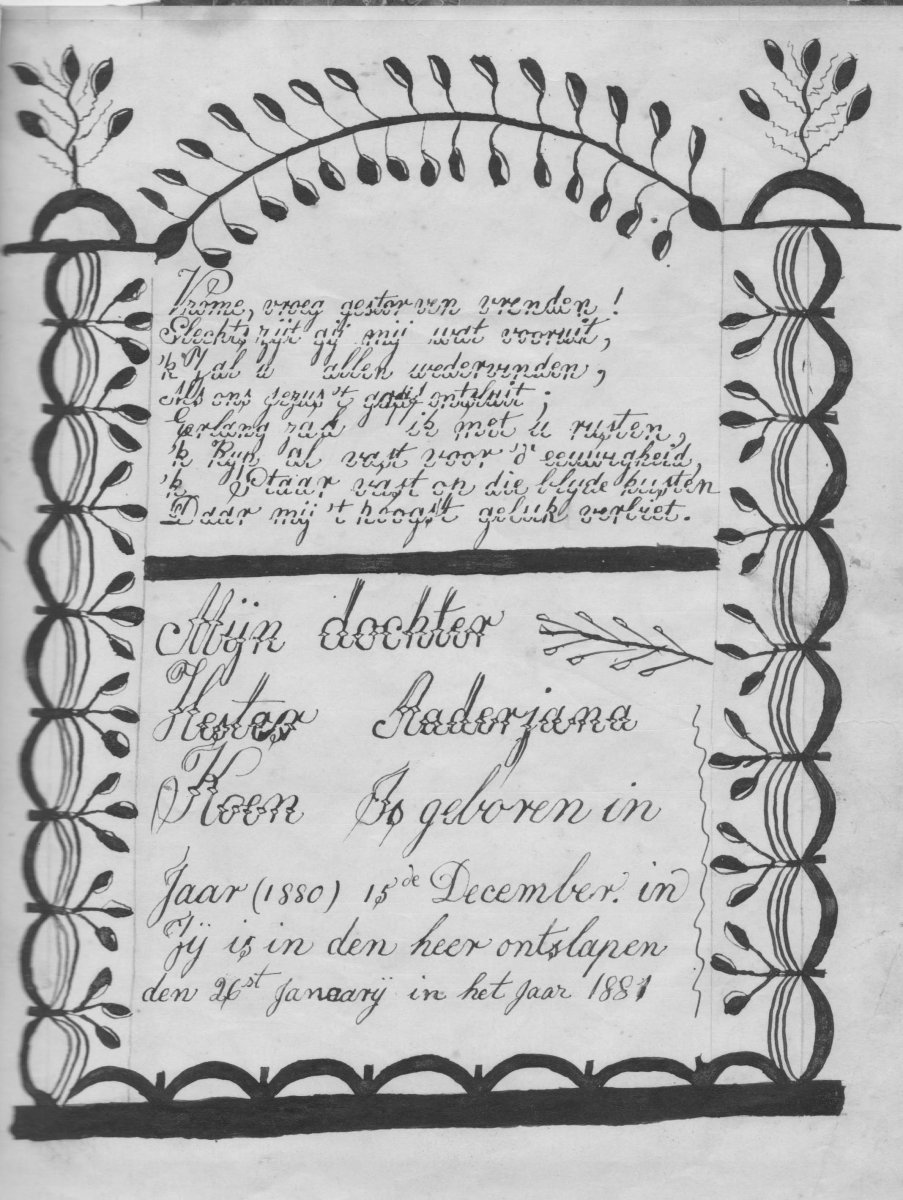 Vrome, vroeg gestorven vrenden!
Slechts zijt gij mij wat vooruit,
'k Zal u allen wedervinden,
Als ons jezus 't graf ontsluit;
Eerlang zad ik met u rusten,
'k Kyk al vast voor d' eeuwigheid,
'k Staar vast op die blyde kusten
Daar mij 't hoogst geluk verbiet.
Mijn dochter
Hester Raderjana
Koen Is geboren in
Jaar (1880) 15de December. in
Zÿ is in den heer ontslapen
den 26st Januarÿ in het Jaar 1881